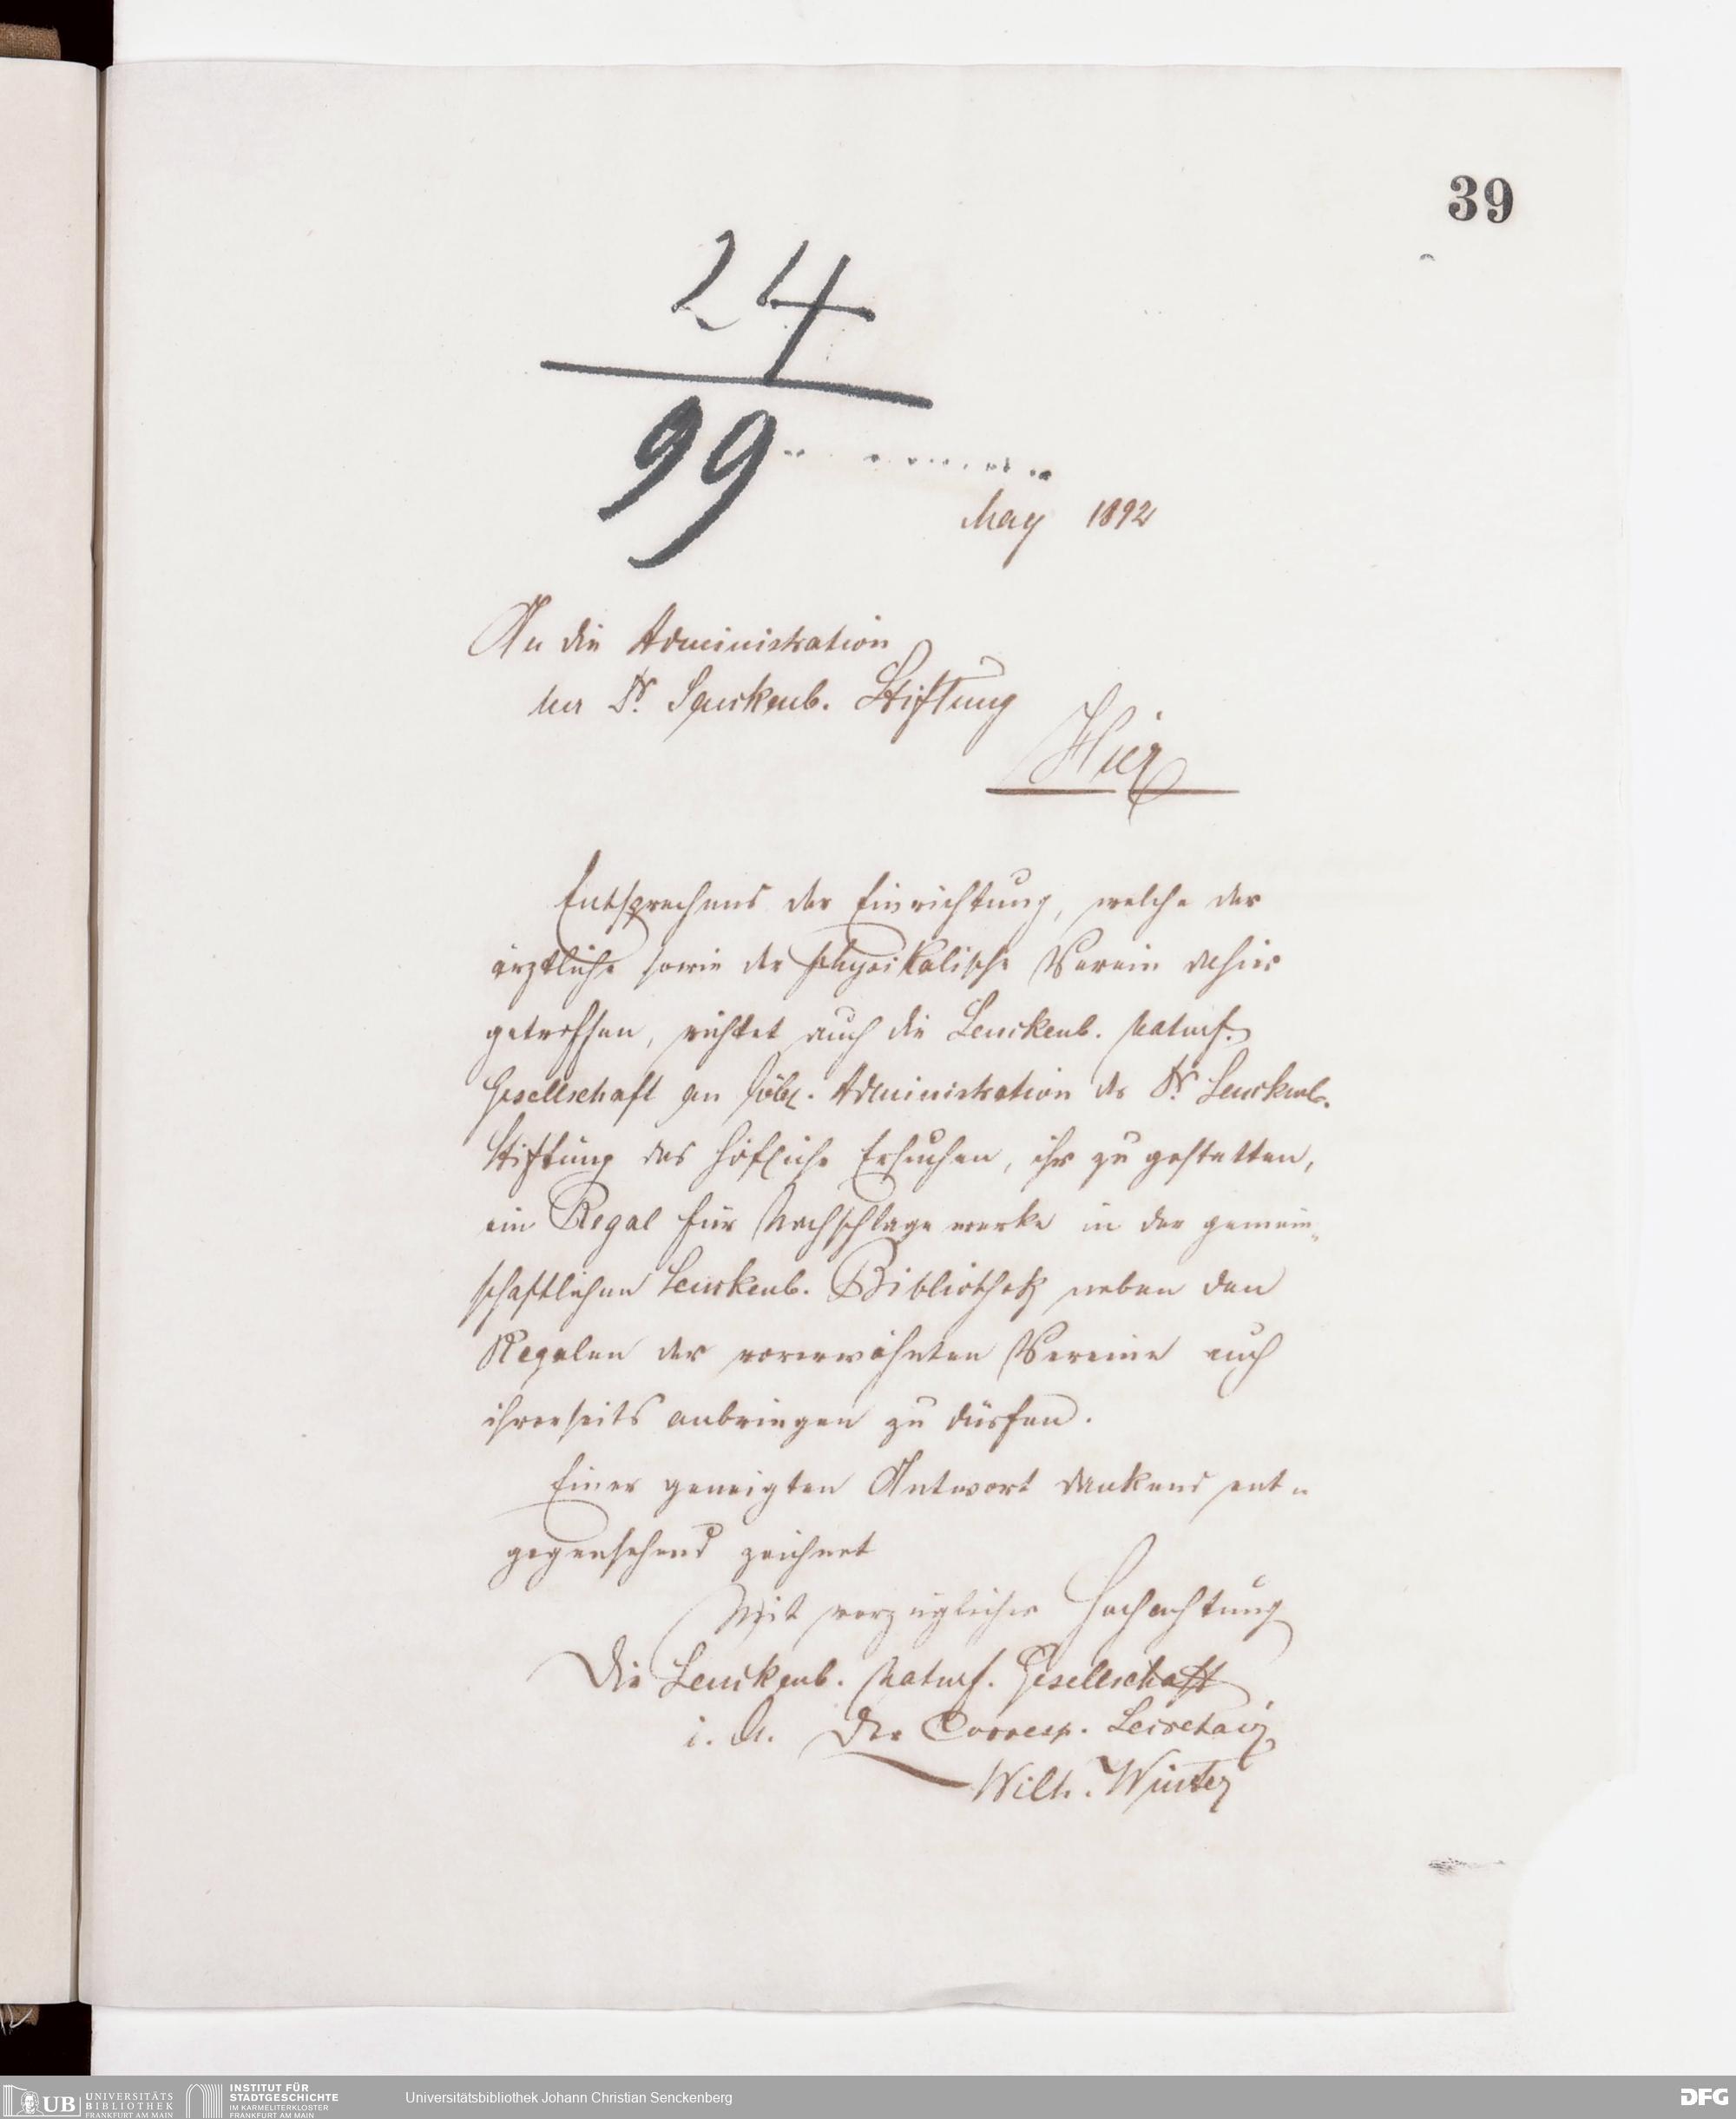 39
24
99
May 1892
An die Administration
der Dr. Senckenb. Stiftung
Hier
Entsprechend der Einrichtung, welche der
ärztliche sowie der physikalische Verein dahier
getroffen, richtet auch die Senckenb. Naturf.
Gesellschaft an löbl. Administration der Dr. Senckenb.
Stiftung das höfliche Ersuchen, ihr zu gestatten,
ein Regal für Nachschlagewerke in der gemein-
schaftlichen Senckenb. Bibliothek neben den
Regalen der vorerwähnten Vereine auch
ihrerseits anbringen zu dürfen.
Einer geneigten Antwort dankend ent-
gegensehend zeichnet
Mit vorzüglicher Hochachtung
Die Senckenb. Naturf. Gesellschaft
i. A. Der Corresp. Secretair
Wilh. Winter
UB UNIVERSITÄTS
BIBLIOTHEK
FRANKFURT AM MAIN
INSTITUT FÜR
STADTGESCHICHTE
IM KARMELITERKLOSTER
FRANKFURT AM MAIN
Universitätsbibliothek Johann Christian Senckenberg
DFG